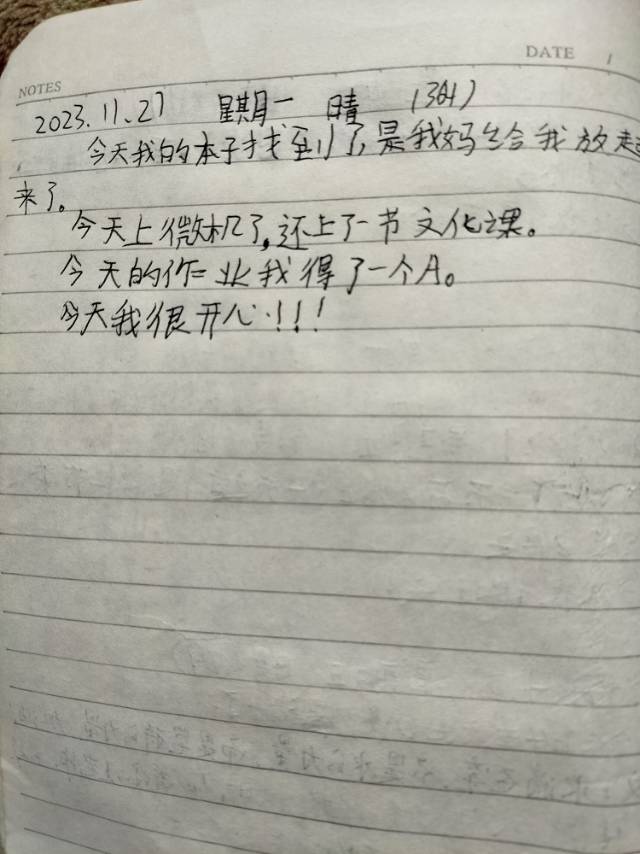 NOTES
DATE
2023.11.27 星期一 晴 (364)
今天我的本子找到了,是我妈给我放起
来了。
今天上微机了,还上了一节文化课。
今天的作业我得了一个A。
今天我很开心!!!